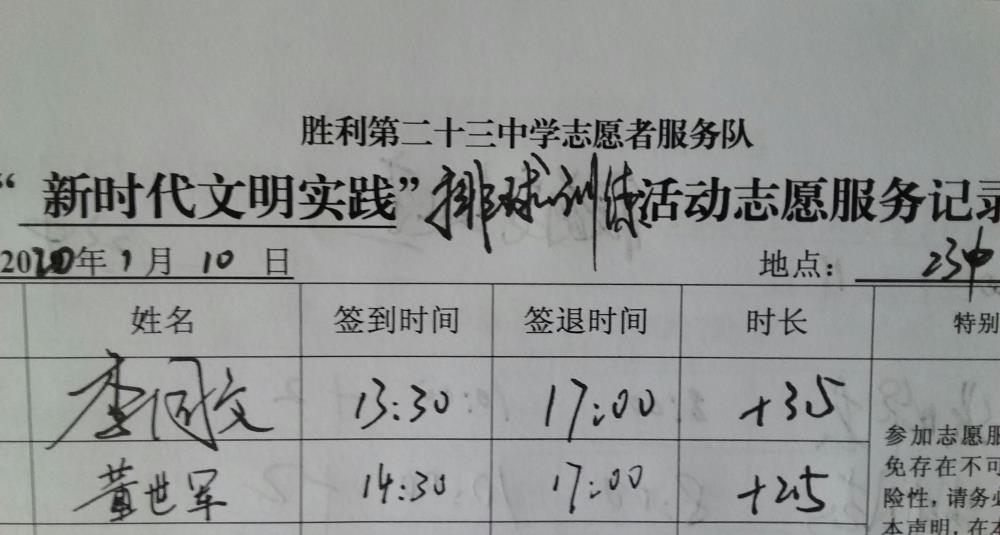 胜利第二十三中学志愿者服务队
“ 新时代文明实践”排球训练活动志愿服务记录
2020年1月10日 地点: 23中
姓名 签到时间 签退时间 时长 特别
李同文 13:30 17:00 +3.5
黄世军 14:30 17:00 +2.5
参加志愿服
免存在不可
险性,请务必
本声明,在本